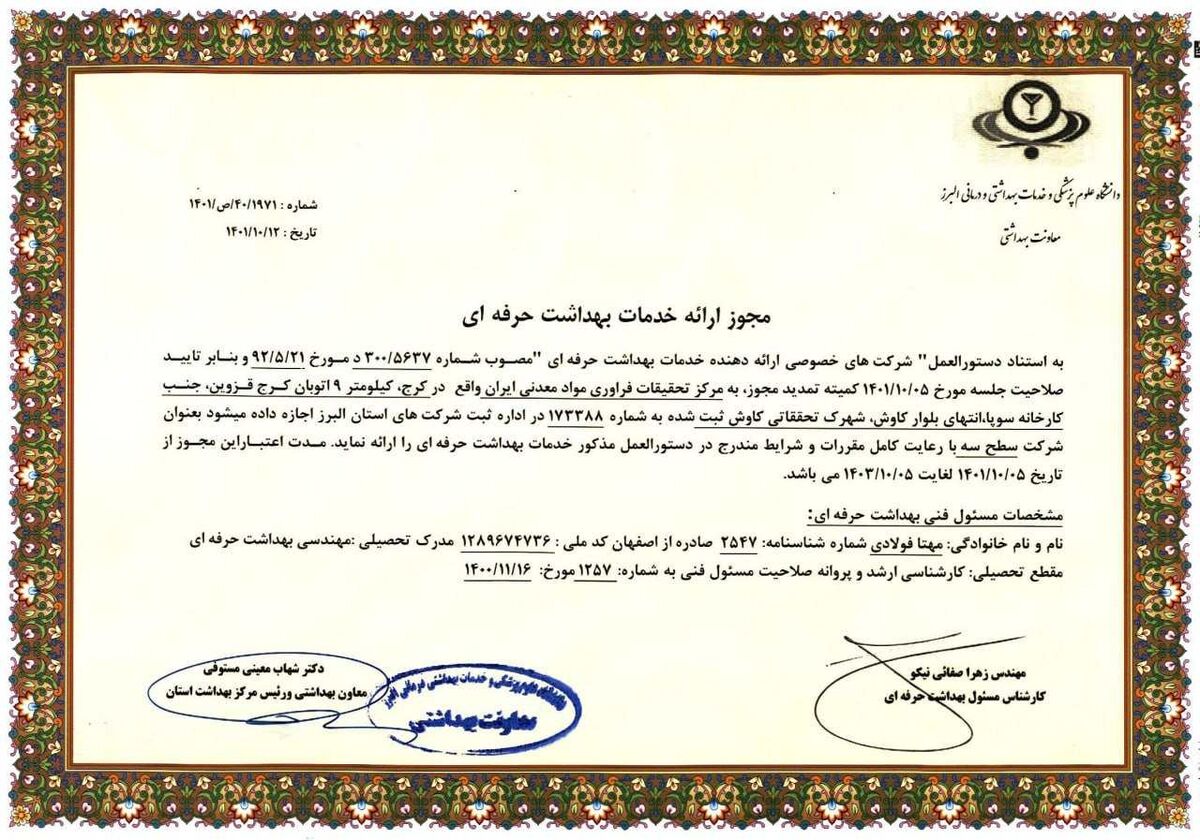 دانشگاه علوم پزشکی و خدمات بهداشتی و درمانی البرز
معاونت بهداشتی
شماره : ۴۰/۱۹۷۱/ص/۱۴۰۱
تاریخ : ۱۴۰۱/۱۰/۱۲
مجوز ارائه خدمات بهداشت حرفه ای
به استناد دستورالعمل" شرکت های خصوصی ارائه دهنده خدمات بهداشت حرفه ای "مصوب شماره ۳۰۰/۵۶۳۷ د مورخ ۹۲/۵/۲۱ و بنابر تایید
صلاحیت جلسه مورخ ۱۴۰۱/۱۰/۰۵ کمیته تمدید مجوز، به مرکز تحقیقات فراوری مواد معدنی ایران واقع در کرج، کیلومتر ۹ اتوبان کرج قزوین، جنب
کارخانه سوپا،انتهای بلوار کاوش، شهرک تحققاتی کاوش ثبت شده به شماره ۱۷۳۳۸۸ در اداره ثبت شرکت های استان البرز اجازه داده میشود بعنوان
شرکت سطح سه با رعایت کامل مقررات و شرایط مندرج در دستورالعمل مذکور خدمات بهداشت حرفه ای را ارائه نماید. مدت اعتباراین مجوز از
تاریخ ۱۴۰۱/۱۰/۰۵ لغایت ۱۴۰۳/۱۰/۰۵ می باشد.
مشخصات مسئول فنی بهداشت حرفه ای:
نام و نام خانوادگی: مهتا فولادی شماره شناسنامه: ۲۵۴۷ صادره از اصفهان کد ملی : ۱۲۸۹۶۷۴۷۳۶ مدرک تحصیلی :مهندسی بهداشت حرفه ای
مقطع تحصیلی: کارشناسی ارشد و پروانه صلاحیت مسئول فنی به شماره: ۱۲۵۷ مورخ: ۱۴۰۰/۱۱/۱۶
مهندس زهرا صفائی نیکو
کارشناس مسئول بهداشت حرفه ای
دکتر شهاب معینی مستوفی
معاون بهداشتی ورئیس مرکز بهداشت استان
دانشگاه علوم پزشکی و خدمات بهداشتی درمانی البرز
معاونت بهداشتی